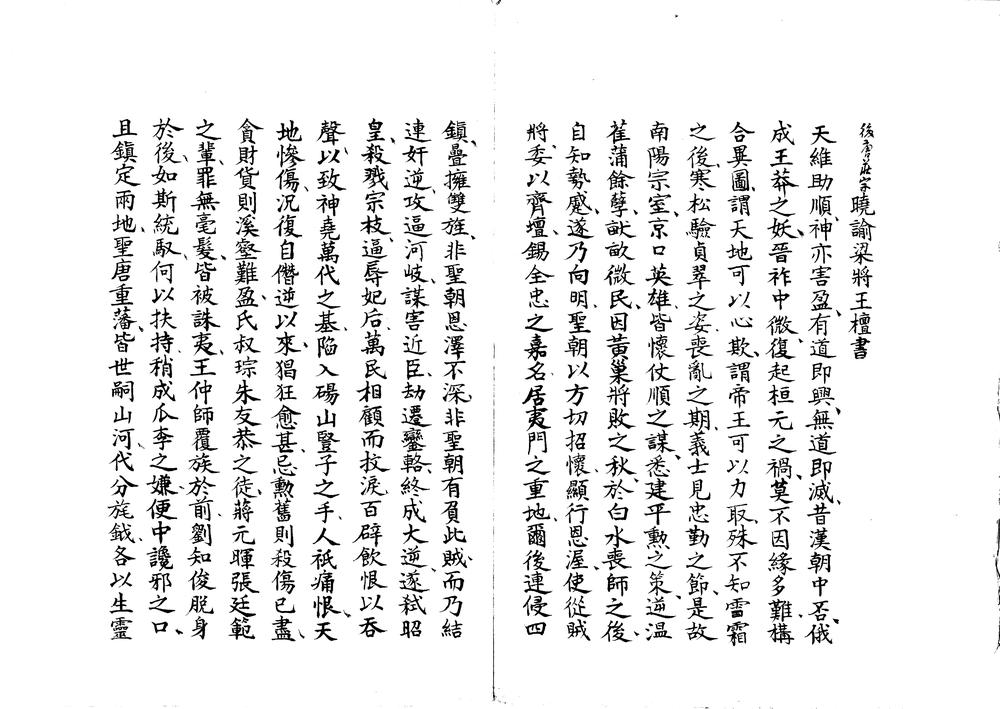 後唐莊宗曉諭梁將王檀書
天維助順、神亦害盈、有道即興、無道即滅、昔漢朝中否、俄
成王莽之妖、晉祚中微、復起桓元之禍、莫不因緣多難、構
合異圖、謂天地可以心欺、謂帝王可以力取、殊不知雪霜
之後、寒松驗貞翠之姿、喪亂之期、義士見忠勤之節、是故
南陽宗室、京口英雄、皆懷仗順之謀、悉建平勲之策、逆溫
萑蒲餘孽、畎畝微民、因黃巢將敗之秋、於白水喪師之後、
自知勢蹙、遂乃向明、聖朝以方切招懷、顯行恩渥、使從賊
將、委以齊壇、錫全忠之嘉名、居夷門之重地、爾後連侵四
鎮、疊擁雙旌、非聖朝恩澤不深、非聖朝有負此賊、而乃結
連奸逆、攻逼河岐、謀害近臣、劫遷鑾輅、終成大逆、遂弒昭
皇、殺戮宗枝、逼辱妃后、萬民相顧而抆淚、百辟飲恨以吞
聲、以致神堯萬代之基、陷入碭山豎子之手、人祇痛恨、天
地慘傷、況復自僭逆以來、猖狂愈甚、忌勲舊則殺傷已盡、
貪財貨則溪壑難盈、氏叔琮朱友恭之徒、蔣元暉張廷範
之輩、罪無毫髮、皆被誅夷、王仲師覆族於前、劉知俊脫身
於後、如斯統馭、何以扶持、稍成瓜李之嫌、便中讒邪之口、
且鎮定兩地、聖唐重藩、皆世嗣山河、代分旄鉞、各以生靈